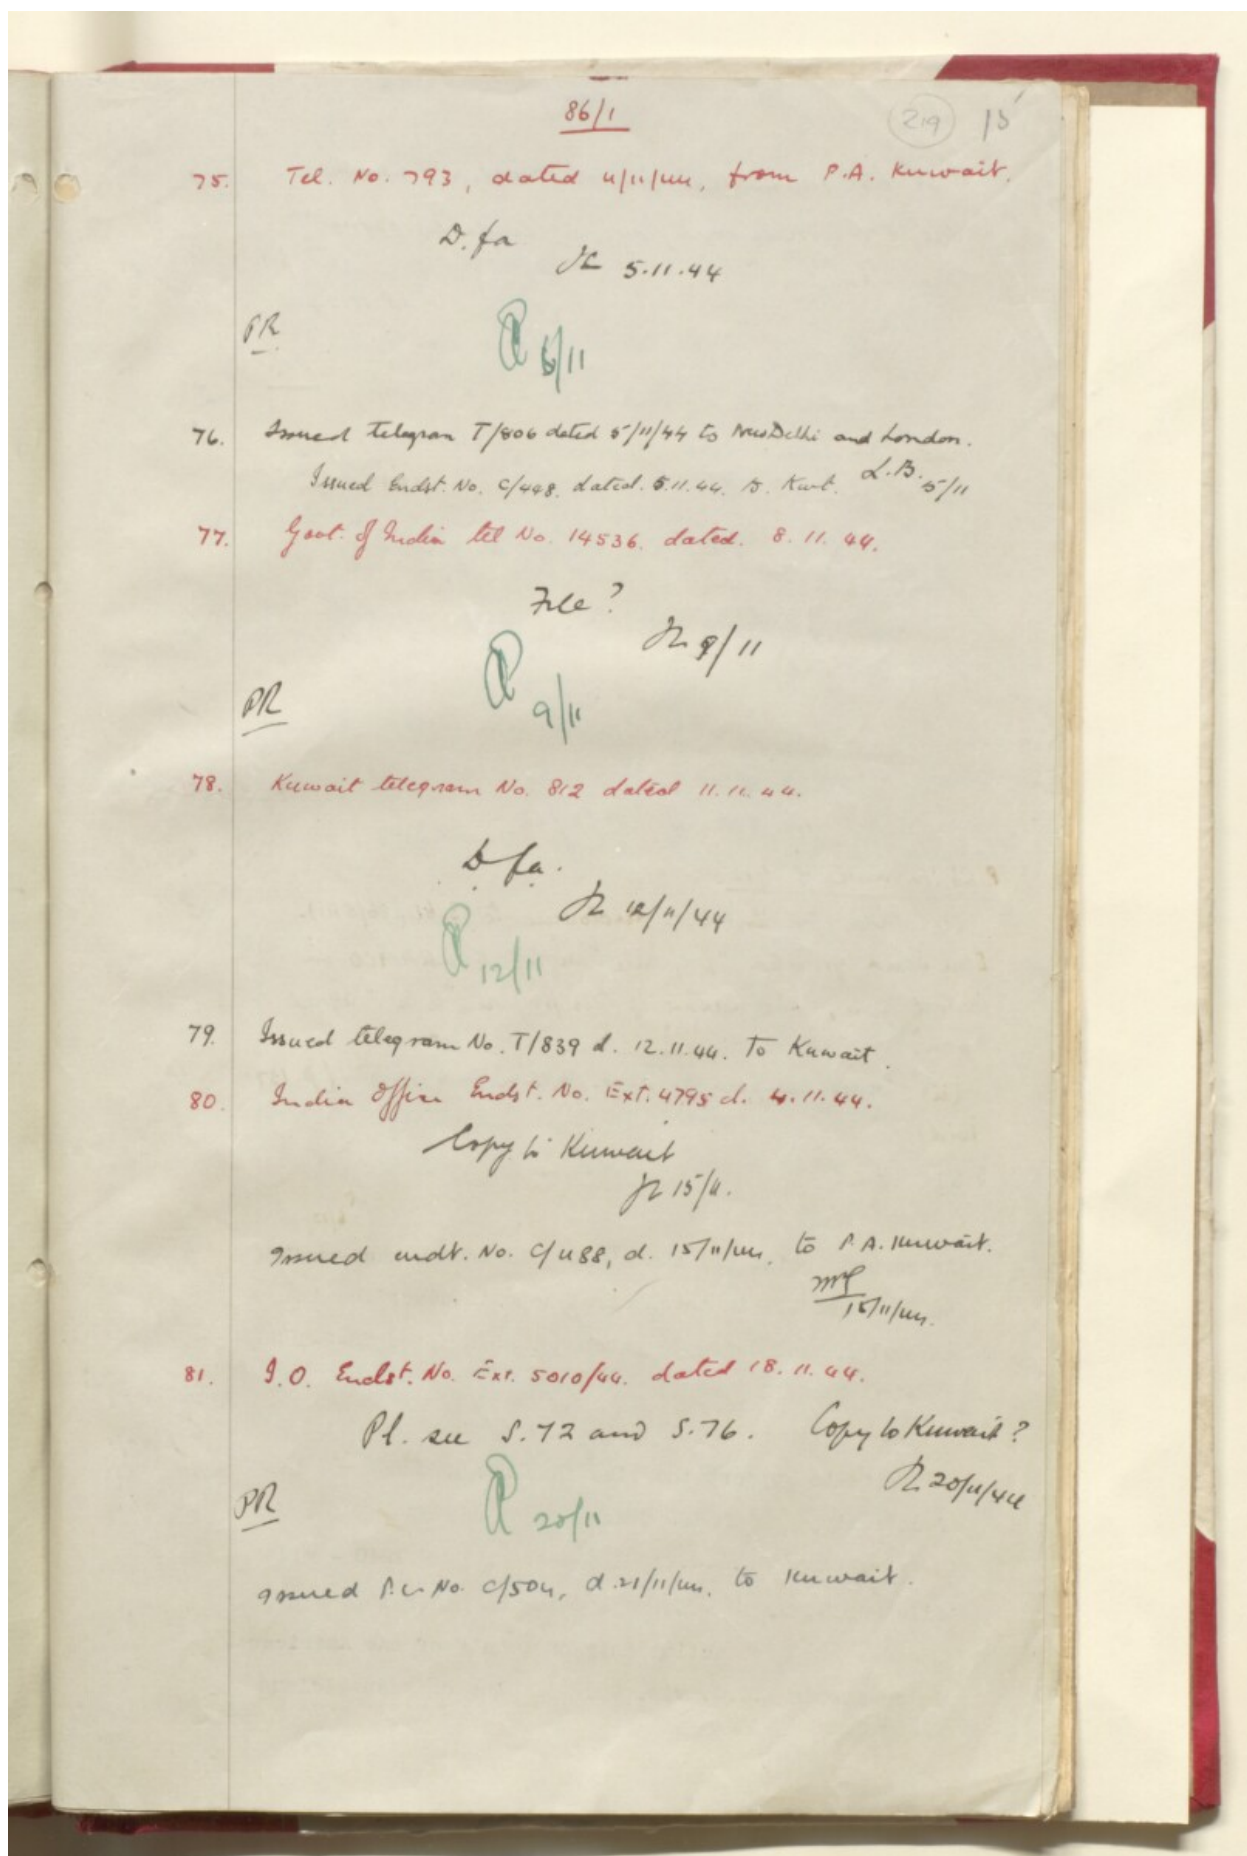 86/1
219 15
75. Tel. No. 793, dated 4/11/44, from P.A. Kuwait.
D. fa
5.11.44
PR
6/11
76. Issued telegram T/806 dated 5/11/44 to New Delhi and London.
Issued Endst. No. C/448, dated 5.11.44. to Kwt. L.B. 5/11
77. Govt. of India tel No. 14536. dated. 8. 11. 44.
File?
9/11
PR
9/11
78. Kuwait telegram No. 812 dated 11.11.44.
D. fa.
12/11/44
12/11
79. Issued telegram No. T/839 d. 12.11.44. To Kuwait.
80. India Office Endst. No. Ext. 4795 d. 4.11.44.
Copy to Kuwait
15/11.
Issued endt. No. C/488, d. 15/11/44, to P.A. Kuwait.
15/11/44.
81. I.O. Endst. No. Ext. 5010/44. dated 18. 11. 44.
Pl. see S.72 and S.76. Copy to Kuwait?
20/11/44
PR
20/11
Issued P.L. No. C/504, d. 21/11/44, to Kuwait.